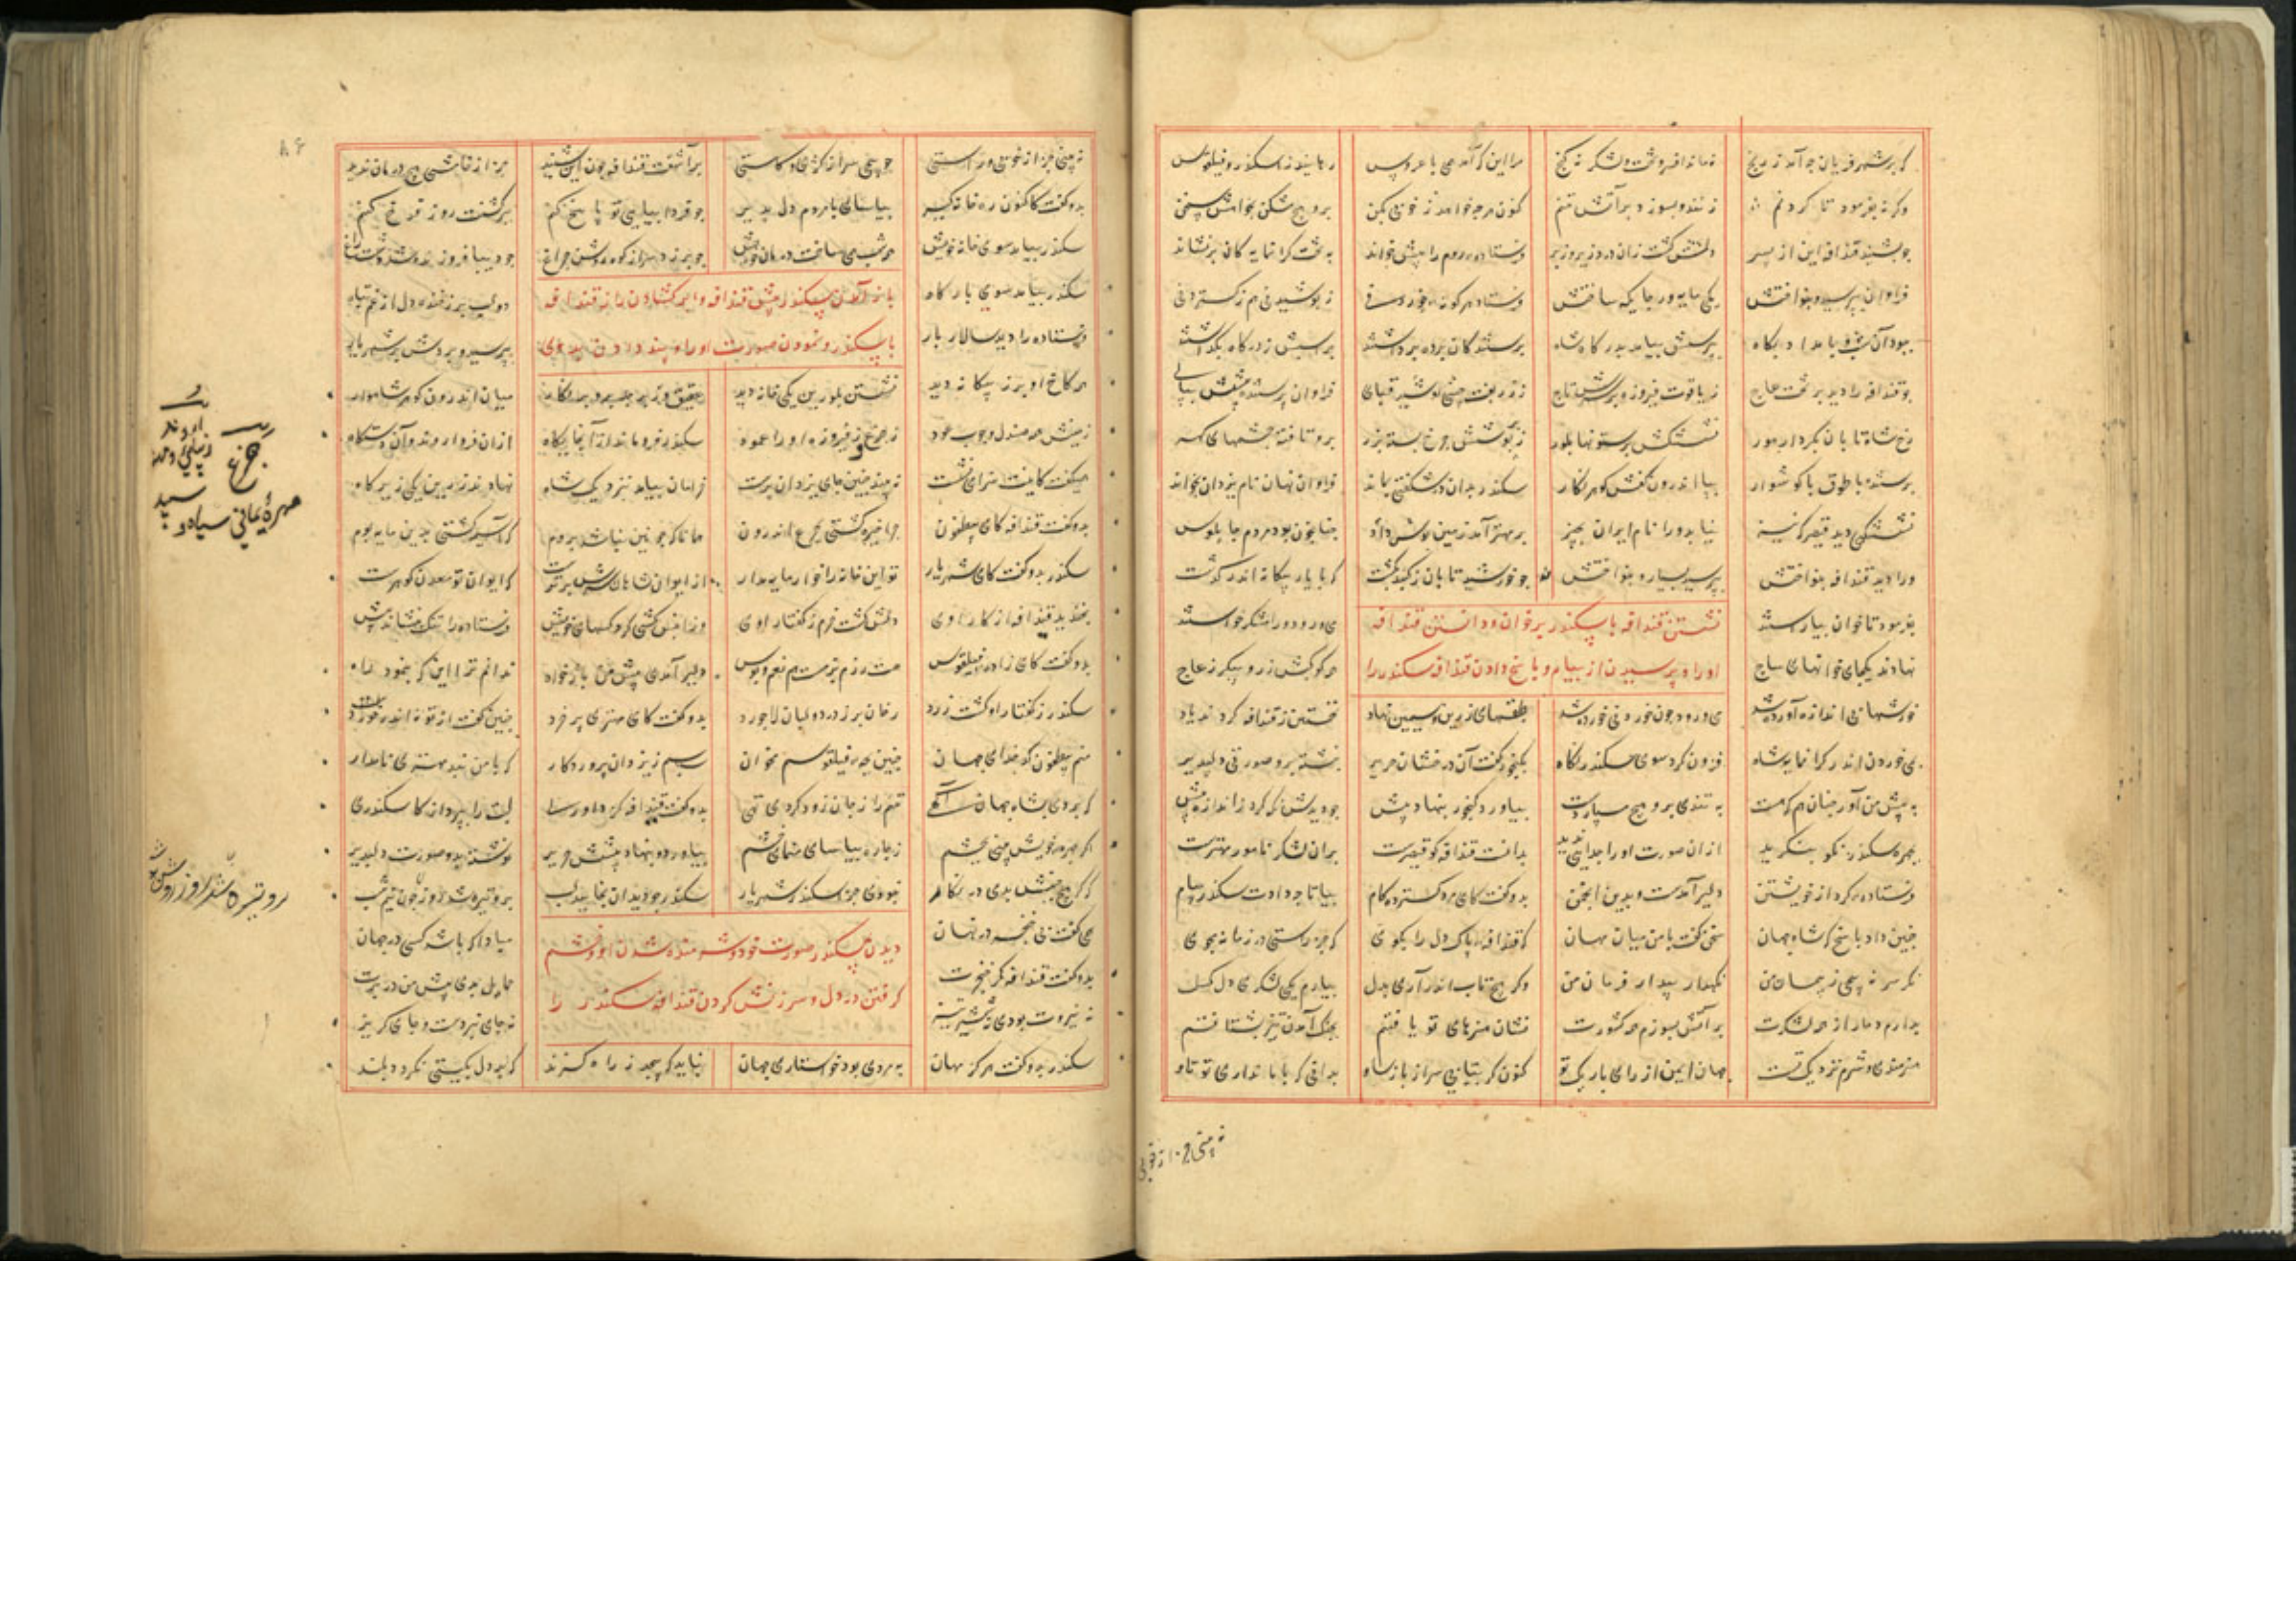 که بر شهر فریان چه آمد ز رنج نه ماند افروخت و لشکر نه گنج مرا این که آمد همی با عروس رهانید ز اسکندر فیلقوس
وگرنه بفرمود تا گردنم زنند و بسوزد بر آتش تنم کنون هر چه خواهد ز خوبی بکن برو هیچ مشکن بخواهش سخن
چو بشنید قندافه این از پسر دلش گشت زان درد زیر و زبر فرستاده روم را پیش خواند به تخت گرانمایه گان بر نشاند
فراوان بپرسید و بنواختش یکی مایه ور جایگه ساختش فرستاد هر گونه خوردنی ز پوشیدنی هم ز گستردنی
ببود آن شب و بامداد پگاه پرسش بیامد بدرگاه شاه پرستندگان پرده برداشتند بر اسبش ز درگاه بگذاشتند
چو قندافه را دید بر تخت عاج ز یاقوت و فیروزه بر سرش تاج ز زربفت چینی کشیده قبای فراوان پرستنده پیشش بپای
رخ شاه تابان بکردار هور نشستنگهش بر ستونها بلور ز پوشش جزع بسته بزر برو تافته چشمهای گهر
پرستنده با طوق با گوشوار بپا اندرون کفش گوهر نگار سکندر بدان در شگفتی بماند فراوان نهان نام یزدان بخواند
نشستنگهی دید قیصر که نیز نیاید ورا نام ایران بچیز بر مهتر آمد زمین بوس داد چنانچون بود مردم چاپلوس
ورا دید قندافه بنواختش بپرسید بسیار و بنواختش چو خورشید تابان ز گنبد بگشت که با یار بیگانه اندر گذشت
بفرمود تا خوان بیاراستند نشستن قندافه با سکندر بر خوان و دانستن قندافه می و رود و رامشگر خواستند
نهادند یکجای خوانهای ساج او را و پرسیدن از پیام و پاسخ دادن قندافه سکندر را همه کوکبش زر و پیکر ز عاج
خورشهای بی اندازه آورده شد می و رود چون خوردنی خورده شد طبقهای زرین و سیمین نهاد نخستین ز قندافه کردند یاد
می خوردن اندر گرانمایه شاه فزون کرد سوی سکندر نگاه بگنجور گفت آن درخشان حریر نبشته برو صورتی دلپذیر
به پیش من آور چنان هم که هست به تندی برو هیچ مپسار دست بیاورد گنجور بنهاد پیش چو دیدش نگه کرد ز اندازه بیش
بچهره سکندر نکو بنگرید از ان صورت او را جدائی ندید بدانست قندافه کو قیصرست بران لشکر نامور مهترست
فرستاده کرد از خویشتن دلیر آمدست و بدین انجمن بدو گفت کای مرد گسترده کام بیا تا چه دادت سکندر پیام
چنین داد پاسخ که شاه جهان سخن گفت با من میان مهان که قندافه پاک دل را بگوی که جز راستی در زمانه مجوی
نگر سر نه پیچی ز فرمان من نگهدار پیدار فرمان من وگر هیچ تاب اندر آری بدل بیارم یکی لشکری دل گسل
برارم دمار از همه لشکرت بر آتش بسوزم همه کشورت نشان هنرهای تو یافتم بجنگ آمدن تیز نشتافتم
هنرمندی و شرم نزدیک تست جهان ایمن از رای باریک تو کنون گر بتابی سر از باژ ساو بدانی که با ما نداری تو تاو
نه بینی جز از خوبی
نه بینی جز از خوبی و راستی چو پیچی سر از کژی و کاستی برآشفت قندافه چون این شنید جز از خامشی هیچ درمان ندید
بدو گفت کاکنون ره خانه گیر بیاسای با مردم دل پذیر چو فردا بیایی تو پاسخ کنم ببرگشت روز فرخ کنم
سکندر بیامد سوی خانه خویش همه شب همی ساخت درمان خویش چو بر زد سر از کوه روشن چراغ چو دیبا فروزنده شد دشت و راغ
سکندر بیامد سوی بارگاه باز آمدن سکندر پیش قندافه و آشکار گشادن راز قندافه دو لب پر ز خنده دل از غم تباه
فرستاده را دید سالار بار با سکندر و نمودن صورت او را و پند دادن بدوی بپرسید و بردش بر شهریار
همه کاخ او پر ز بیگانه دید نشستن بلورین یکی خانه دید عقیق و زبرجد برو بر نگار میان اندرون گوهر شاهوار
زمینش همه صندل و چوب عود ز جزع و ز فیروزه او را عمود سکندر فروماند از آن جایگاه از ان فر و اروند و آن دستگاه
همیگفت کاینت سرای نشست نه بیند چنین جای یزدان پرست خرامان بیامد نزدیک شاه نهادند زرین یکی زیر گاه
بدو گفت قندافه کای بیطقون چرا خیره گشتی بجزع اندرون همانا که چونین نباشد بروم که آسیمه گشتی بدین مایه بوم
سکندر بدو گفت کای شهریار تو این خانه را خوار مایه مدار از ایوان شاهان سرش برترست که ایوان تو معدن گوهرست
بخندید قندافه از کار اوی دلش گشت خرم ز گفتار اوی وزان پس کشی کرد کسهای خویش فرستاده را تنگ بنشاند پیش
بدو گفت کای زاده فیلقوس همت رزم بزمت هم نعم و بوس دلیر آمدی پیش من باژ خواه ندانم ترا این که بنمود راه
سکندر ز گفتار او گشت زرد رخان پر ز درد و لبان لاجورد بدو گفت کای مهتر پر خرد چنین گفت از تو نه اندر خورد
منم بیطقون کدخدای جهان چنین چهره فیلقوسم مخوان سپاسم ز یزدان پروردگار که با من نبد مهتری نامدار
که بردی بشاه جهان آگهی تنم را ز جان زود کردی تهی بدو گفت قندافه کز داوری لبت را بپرداز کاسکندری
اگر چهره خویش بینی بچشم ز چاره بیاسای منمای خشم بیاورد و بنهاد پیشش حریر نوشته بدو صورت دلپذیر
که گر هیچ جنبش بدی در نگار نبودی جز اسکندر شهریار سکندر چو دید آن بخایید لب برو تیره شد روز چون تیره شب
همی گفت بی خنجر در نهان دیدن سکندر صورت خود و شرمنده شدن او و خشم مبادا که باشد کسی در جهان
بدو گفت قندافه گر خنجرت گرفتن در دل و سرزنش کردن قندافه سکندر را حمایل بدی پیش من در برت
نه نیروت بودی نه شمشیر تیز نه جای نبردست و جای گریز
سکندر بدو گفت هر کز مهان به مردی بود خواستاری جهان نباید که پیچد ز راه گزند که بد دل بگیتی نگردد بلند
جزع
مهره یمانی سیاه و سپید
برو تیره شد روز روشن